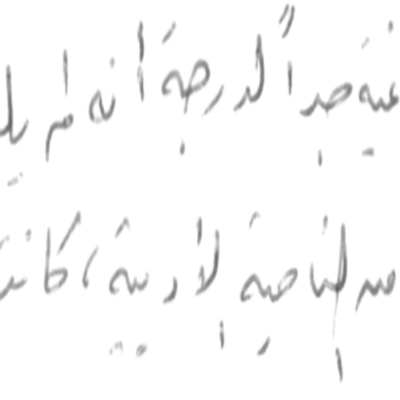 غنية جداً لدرجة أنه لم يك
من الناحية الأدبية، كانت